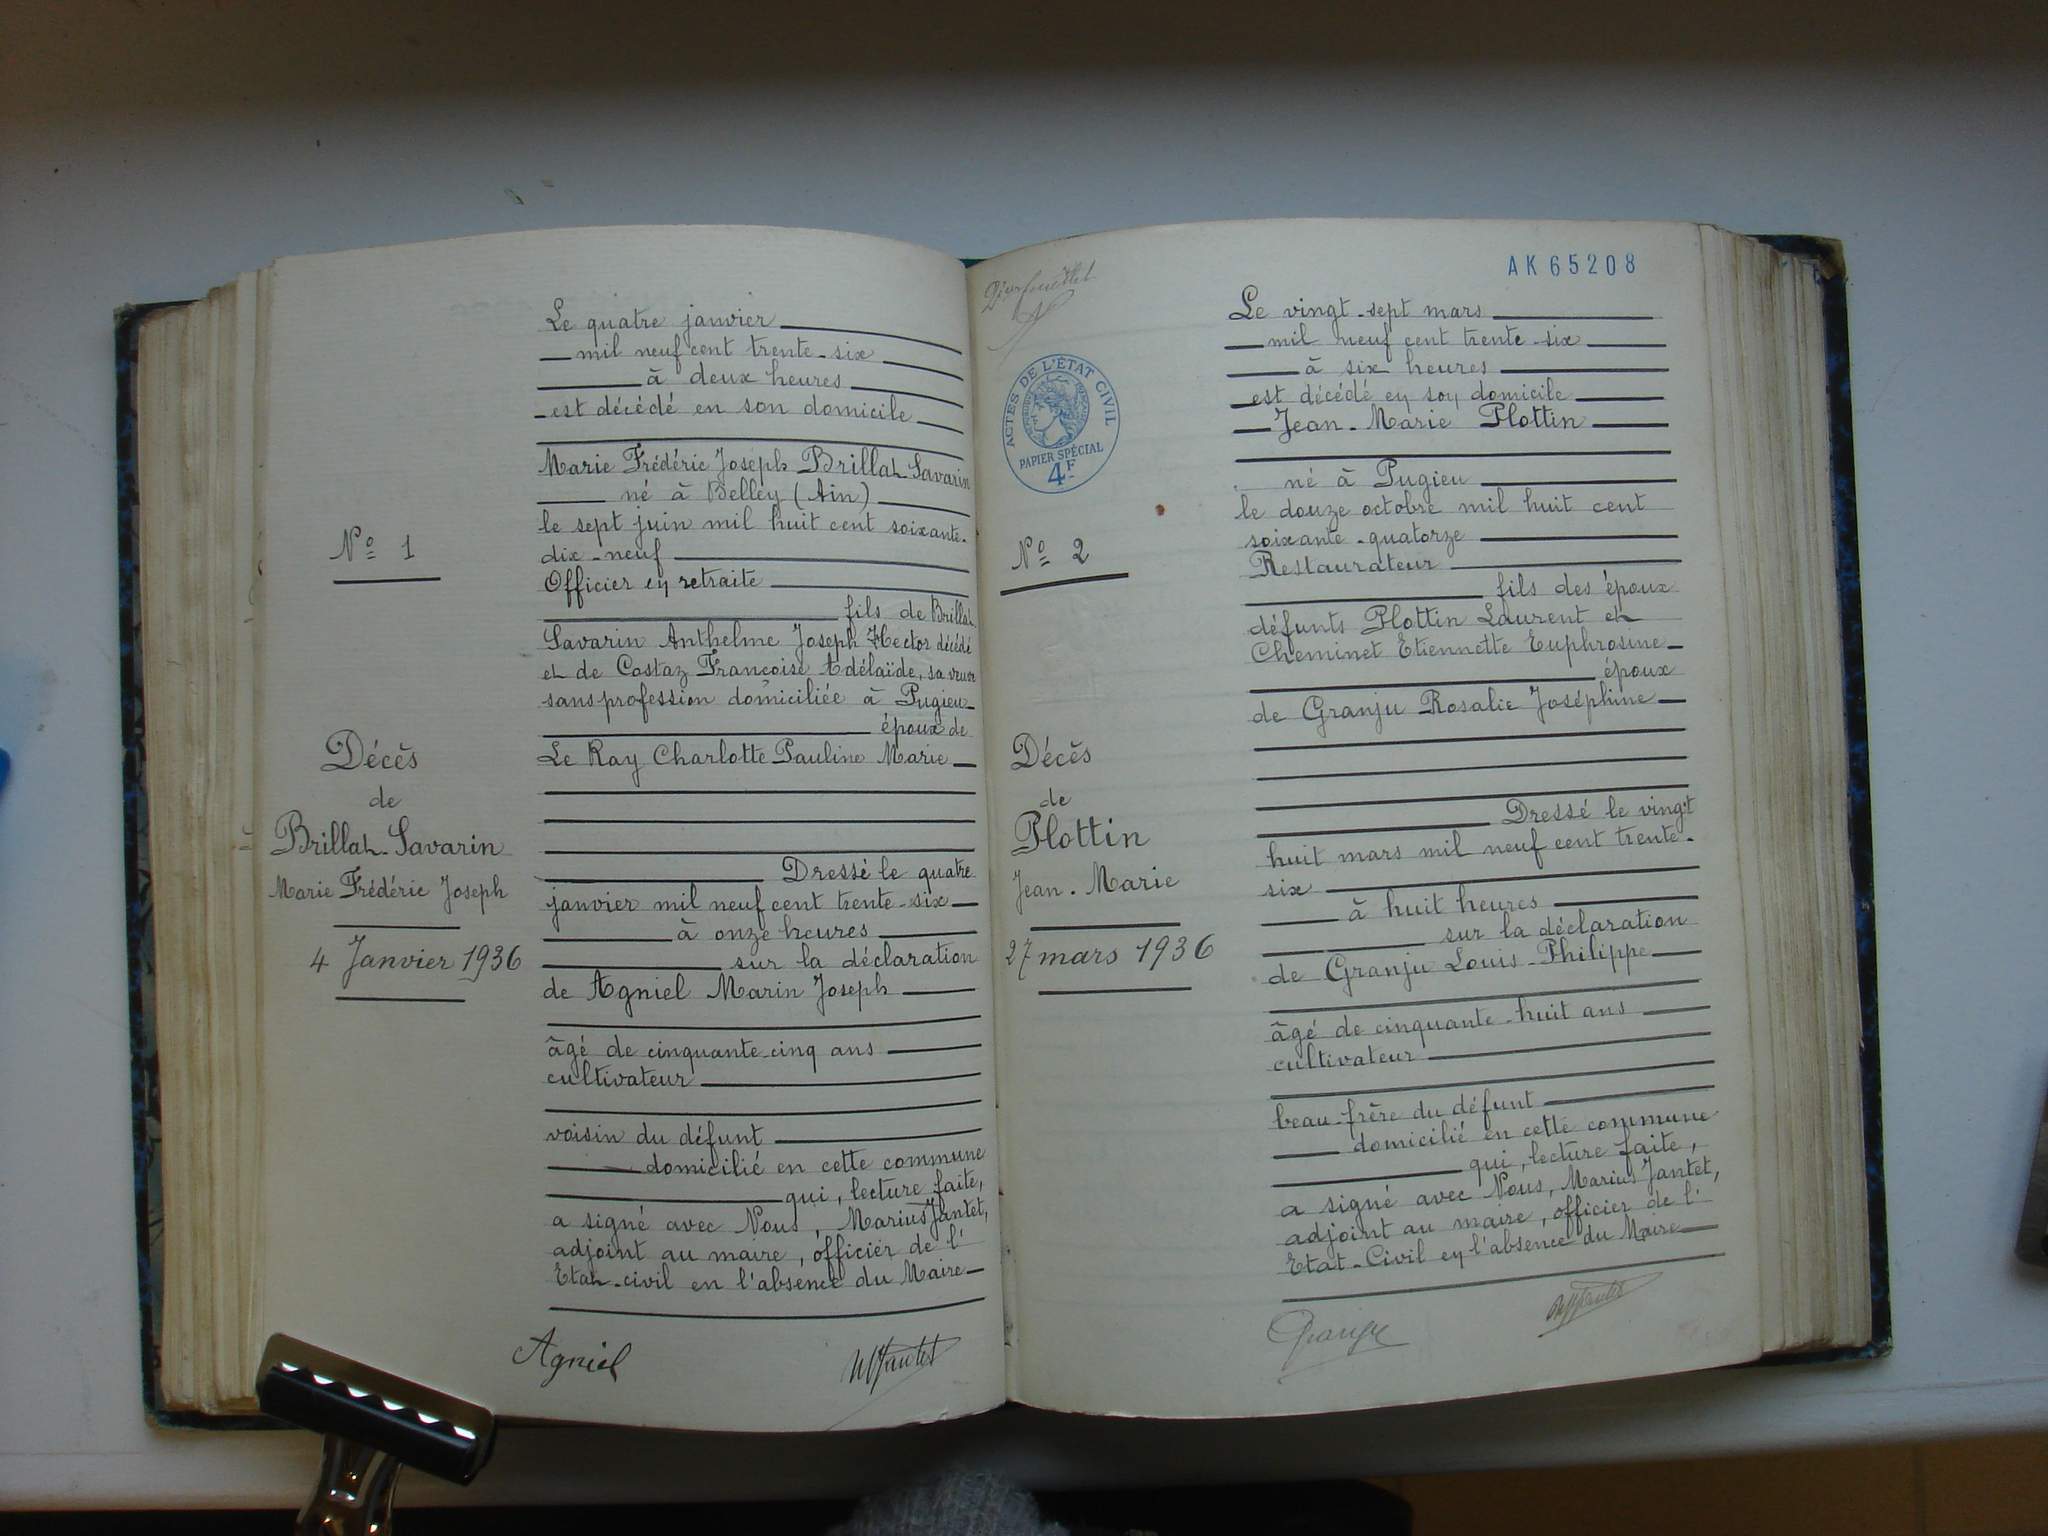 Le quatre janvier
mil neuf cent trente-six
à deux heures
est décédé en son domicile
Marie Frédéric Joseph Brillat-Savarin
né à Belley (Ain)
le sept juin mil huit cent soixante-
dix-neuf
Officier en retraite
fils de Brillat
Savarin Anthelme Joseph Hector décédé
et de Costaz Françoise Adélaïde, sa veuve
sans profession domiciliée à Pugieu
époux de
Le Ray Charlotte Pauline Marie
Dressé le quatre
janvier mil neuf cent trente-six
à onze heures
sur la déclaration
de Agniel Marin Joseph
âgé de cinquante-cinq ans
cultivateur
voisin du défunt
domicilié en cette commune
qui, lecture faite,
a signé avec Nous, Marius Jantet,
adjoint au maire, officier de l'
Etat-civil en l'absence du Maire
Agniel
Jantet
No 1
Décès
de
Brillat-Savarin
Marie Frédéric Joseph
4 Janvier 1936
AK 65208
ACTES DE L'ÉTAT CIVIL
PAPIER SPÉCIAL
4F
No 2
Décès
de
Plottin
Jean-Marie
27 mars 1936
Le vingt-sept mars
mil neuf cent trente-six
à six heures
est décédé en son domicile
Jean-Marie Plottin
né à Pugieu
le douze octobre mil huit cent
soixante-quatorze
Restaurateur
fils des époux
défunts Plottin Laurent et
Cheminet Etiennette Euphrosine
époux
de Granju Rosalie Joséphine
Dressé le vingt
huit mars mil neuf cent trente-
six
à huit heures
sur la déclaration
de Granju Louis-Philippe
âgé de cinquante-huit ans
cultivateur
beau-frère du défunt
domicilié en cette commune
qui, lecture faite,
a signé avec Nous, Marius Jantet,
adjoint au maire, officier de l'
Etat-Civil en l'absence du Maire
Granju
Jantet